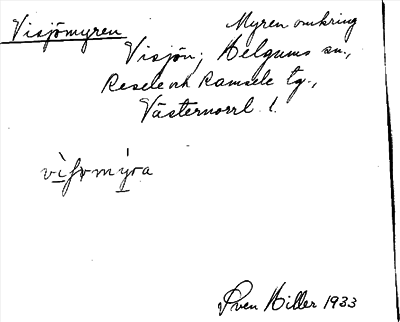 Visjömyren
Myren omkring
Visjön; Helgums sn.,
Resele och Ramsele tg.,
Västernorrl. l.
Sven Hiller 1933